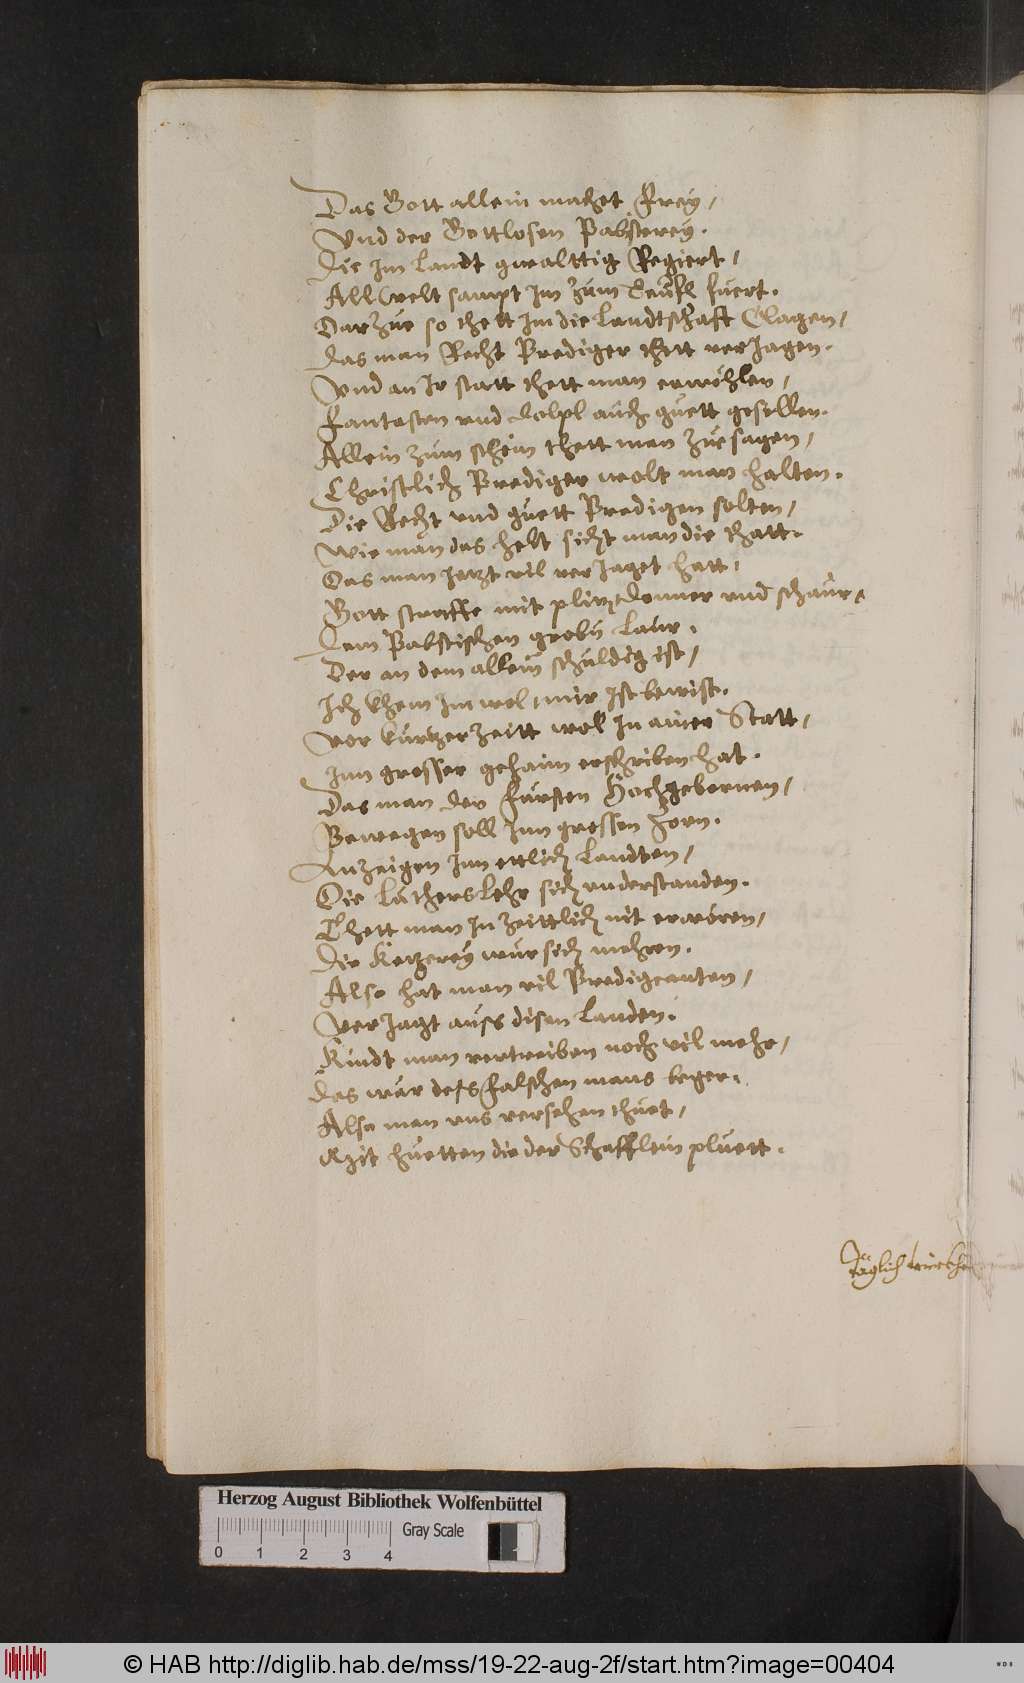 Das Gott allein machet frey /
Vnd der Gottlosen Pabsterey.
Die Im Landt gwalttig Regiert /
All Welt sampt Im zum Teufl fuert.
Darzue so thett Im die Landtschafft Clagen /
Das man Recht Prediger thett verJagen.
Vnd an Ir statt thett man erwöhlen /
Fantasten vnd dolpl auch guett gesellen.
Allein zum schein thett man zuesagen /
Christlich Prediger wolt man halten.
Die Recht vnd guett Predigen solten /
Wie man das helt sicht man die thatt.
Das man Jetzt vil verJaget hatt /
Gott straffe mit plitz donner vnd schaur /
Dem Pabstischen grobn Laur.
Der an dem allein schuldig ist /
Ich khem Im wol mir Ist bewist.
Vor kurtzer Zeitt wol In ainer Statt /
Inn grosser gehaim erschriben hat.
Das man der Fürsten Hochgebornen /
Bewegen soll Inn grossen Zorn.
Anzeigen Inn ettlich Landten /
Die Luthers Lehr sich vnderstanden.
Thett man In Zeittlich nit erwören /
Die Ketzerey wur sich mehren.
Also hat man vil Predigcanten /
VerJagt auss disen Landen.
Kundt man vertreiben noch vil mehr /
Das wär dess falschen mans beger.
Also man vns versehen thuet /
Mit huetten die der Schafflein pluett.
Täglich
Herzog August Bibliothek Wolfenbüttel
Gray Scale
0 1 2 3 4
© HAB http://diglib.hab.de/mss/19-22-aug-2f/start.htm?image=00404